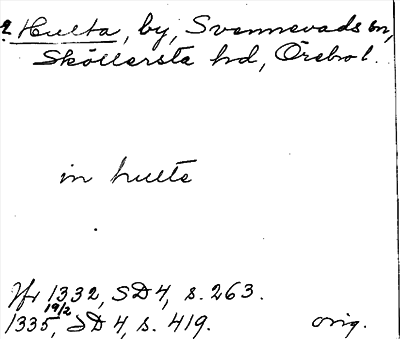 ? Hulta, by, Svennevads sn,
Sköllersta hd, Örebro l.
in hulte
Jfr 1332, SD 4, s. 263.
1335 19/2, SD 4, s. 419. orig.